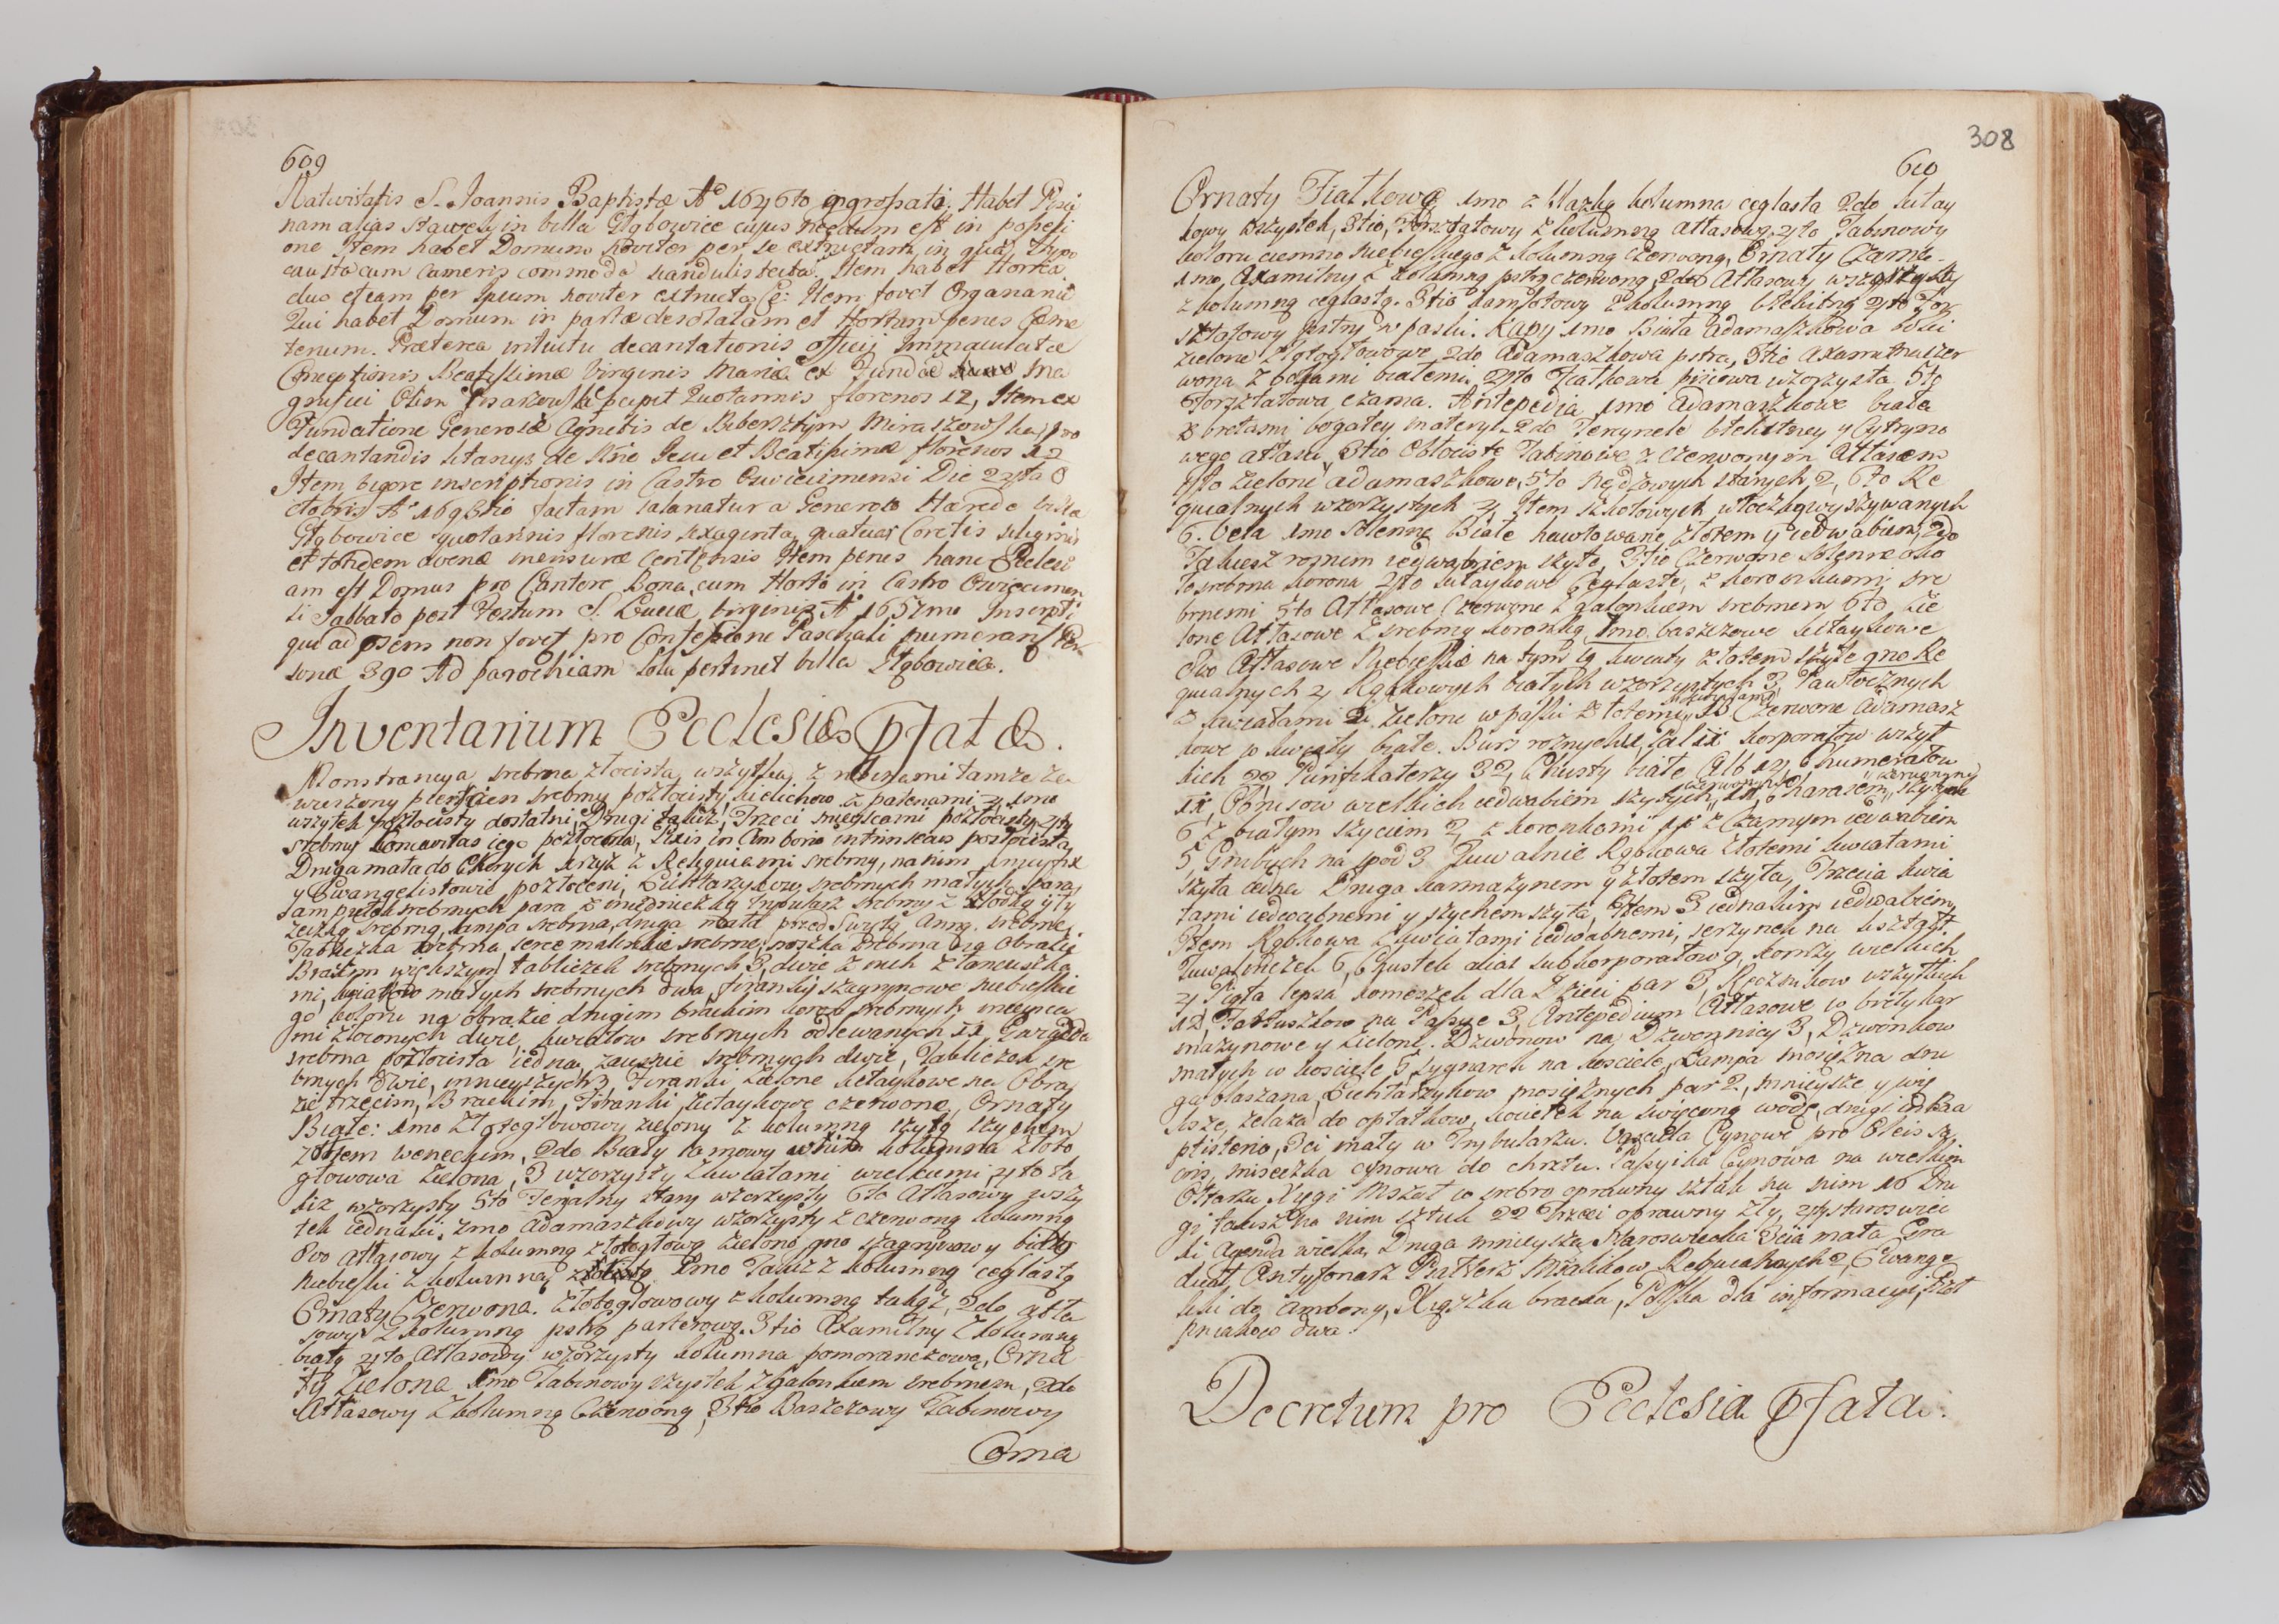 609
Nativitatis S. Joannis Baptistæ A° 1646to ingrossati. Habet Pisci
nam alias stawek in villa Głębowice cujus necdum est in possessi
one Item habet Domum noviter per se extructam in qua Hypo
causta cum Cameris commoda scandulis tecta. Item habet Horrea
duo etiam per Ipsum noviter extructa Item fovet Organariū
Qui habet Domum in parte desolatam et Hortum penes Cœme
terium. Præterea intuitu decantationis officij Immaculatæ
Conceptionis Beatissimæ Virginis Mariæ ex Fundāe Ma
gnifici Olim Pisarzowski percipit Quotannis florenos 12, Item ex
Fundatione Generosæ Agnetis de Bibersztyn Miraszowska pro
decantandis litanys de Nñe Jesu et Beatissimæ florenos 12
Item vigore inscriptionis in Castro Oswiecimensi Die 24ta O
ctobris A° 1693tio factam Salanatur a Generoso Hærede villæ
Głębowice quotannis florenis sexaginta quatuor Coretis siliginis
et totidem avenæ mensuræ Centensis Item penes hanc Ecclesi
am est Domus pro Cantore Bona, cum Horto in Castro Oswiecimen
si Sabbato post Festum S. Luciæ Virginis A° 1657mo Inscripti
qui ad psens non fovet pro Confessione Paschali numerant Per
sonæ 390 Ad parochiam sola pertinet villa Głębowice.
Inventarium Ecclesiæ pfatæ.
Monstrancya srebrna złocista, wszytka, z tamze za
wieszony pierscien srebrny pozłocisty, kielichow z patenami 4, 1mo
wszytek pozłocisty dostatni, Drugi takiż, Trzeci mieyscami pozłocisty, 4ty
srebrny Concavitas iego pozłocona, Pixis in Cimborio intrinsecus pozłocista,
Druga mała do Chorych krzyż z Reliquiami srebrny, na nim Crucyfix
y Ewangelistowie, pozłoceni, Lichtarzykow, srebrnych małych para,
Ampułek srebrnych para z miedniczką Trybularz srebrny z łodką y ły
zeczką srebrną, lampa srebrna, druga mała przed Swiętą Anną srebrna,
Tabliczka srebrna, serce malinkie srebrne, nożka srebrna na Obrazie
Brackim większym, tabliczek srebrnych 3, dwie z nich z łancuszka
mi, kwiatkow małych srebrnych dwa, firanki szagrynowe niebieskie
go koloru na obrazie drugim brackim koron srebrnych mieysca
mi złoconych dwie, kwiatow srebrnych odlewanych 11, Gwiazda
srebrna pozłocista iedna, zausznic srebrnych dwie, Tabliczek sre
brnych Dwie, mnieyszych 3, Firanki zielone kitaykowe na Obra
zie trzecim, Brackim, Firanki, kitaykowe czerwone, Ornaty
Białe: 1mo Złotogłowowy zielony z kolumną szytą szychem
złotem weneckim, 2do Biały lamowy kolumna złoto
głowowa zielona, 3 wzorzysty z kwiatami wielkiemi, 4to ta
kiz wzorzysty 5to Feryalny stary wzorzysty 6to Atłasowy wszy
tek iednaki, 7mo Adamaszkowy wzorzysty z czerwoną kolumną
8vo Atłasowy z kolumną złotogłową zieloną 9no szagrynowy biało
niebieski z kolumną złotą 10mo Takiż z kolumną ceglastą
Ornaty Czerwone. Złotogłowowy z kolumną takąż, 2do Atła
sowy z kolumną pstrą parterową. 3tio Axamitny z kolumną
białą 4to Atłasowy wzorzysty kolumna pomaranczowa, Orna
ty Zielone 1mo Tabinowy wszystek z galonkiem srebrnem, 2do
Atłasowy z kolumną Czerwoną, 3tio Baszczowy Tabinowy
Orna
308
610
Ornaty Fiałkowe 1mo z kolumna ceglasta 2do kitay
kowy wszystek, 3tio, Forsztatowy z kolumną Atłasową 4to Tabinowy
koloru ciemno niebieskiego z kolumną czerwoną, Ornaty Czarne
1mo Axamitny z kolumną pstrą czerwoną, 2do Atłasowy wszystek
z kolumną ceglastą. 3tio kamlotowy z kolumną błekitną 4to For
sztatowy pstry w paski. Kapy 1mo Biała Adamaszkowa boki
zielone złotogłowowe 2do Adamaszkowa pstra, 3tio Axamitna czer
wona z bokami białemi 4to Fiałkowa piżiowa wzorzysta 5to
Forsztatowa czarna. Antepedia 1mo Adamaszkowe białe
z bretami bogatey materyi 2do Tercynele błekitney y Cytryno
wego Atłasu, 3tio Obłociste Tabinowe z Czerwonym Atłasem
4to Zielone Adamaszkowe, 5to starych 2, 6to Re
quialnych wzorzystych 4 Item szkotowych włoczką wyszywanych
6. Vela 1mo Solenne Białe hawtowane złotem y iedwabiem, 2do
Takież roznem iedwabiem szyte, 3tio Czerwone solenne oko
ło srebrna korona 4to kitaykowe Ceglaste, z koronkami, sre
brnemi 5to Atłasowe Czerwone z galonkiem srebrnem 6to Zie
lone Atłasowe z srebrną koronką 7mo baszczowe kitaykowe
8vo Atłasowe Niebieskie na tym są kwiaty złotem szyte 9no Re
quialnych 4 Rąbkowych białych wzorzystych 3, Tawłocznych
z kwiatami 2 Zielone w paski złotemi kwiatami 10 Czerwone Adamasz
kowe w kwiaty białe. Burs roznych 11, Pal 11 korporałow wszyt
kich 22 Purifikaterzy 32, Chusty białe Alb 12, humerałow
12, Obrusow wielkich iedwabiem szytych czerwonym 2, 6 harasem czerwonym szytych
6 z białym szyciem 2, z koronkami 11 z Czarnym iedwabiem
5, Grubych na spod 3 Tuwalnie Rąbkowa złotemi kwiatami
szyta iedna Druga karmazynem y złotem szyta, Trzecia kwia
tami iedwabnemi y szychem szyta, Item 3 iednakim iedwabiem,
Item Rąbkowa z kwiatami iedwabnemi, serzynek na kształt
Tuwalniczek 6, Chustek alias subkorporałow 9, komży wielkich
4 Piąta lepsza komeszek dla Dzieci par 3, Ręcznikow wszytkich
12, Fartuszkow na Passye 3, Antepedium Atłasowe w brety kar
mazynowe y zielone. Dzwonow na Dzwonnicy 3, Dzwonkow
małych w kosciele 5, sygnarek na kosciele, Lampa mosiężna dru
ga blaszana, Lichtarzykow mosiężnych par 2, mnieysze y wię
ksze, żelaza do opłatkow, kociełek na swięconą wodę, drugi in Ba
ptisterio, 3ci mały w Trybularzu. Vascula Cynowe pro Oleis Sa
cris, miseczka cynowa do chrztu. Passyika Cynowa na wielkim
Ołtarzu, Xięgi Mszał w srebro oprawny sztuk na nim 16 Dru
gi takisz na nim sztuk 22 Trzeci oprawny zły, 4ty staroswiec
ki Agenda wielka, Druga mnieysza Staroswiecka 3cia mała Gra
duał, Antyfonarz Psałterz Mszalikow Requialnych 2, Ewange
liki do Ambony, Xiążka bracka, Polska dla informacyi, Stol
pniakow dwa.
Decretum pro Ecclesia pfata.